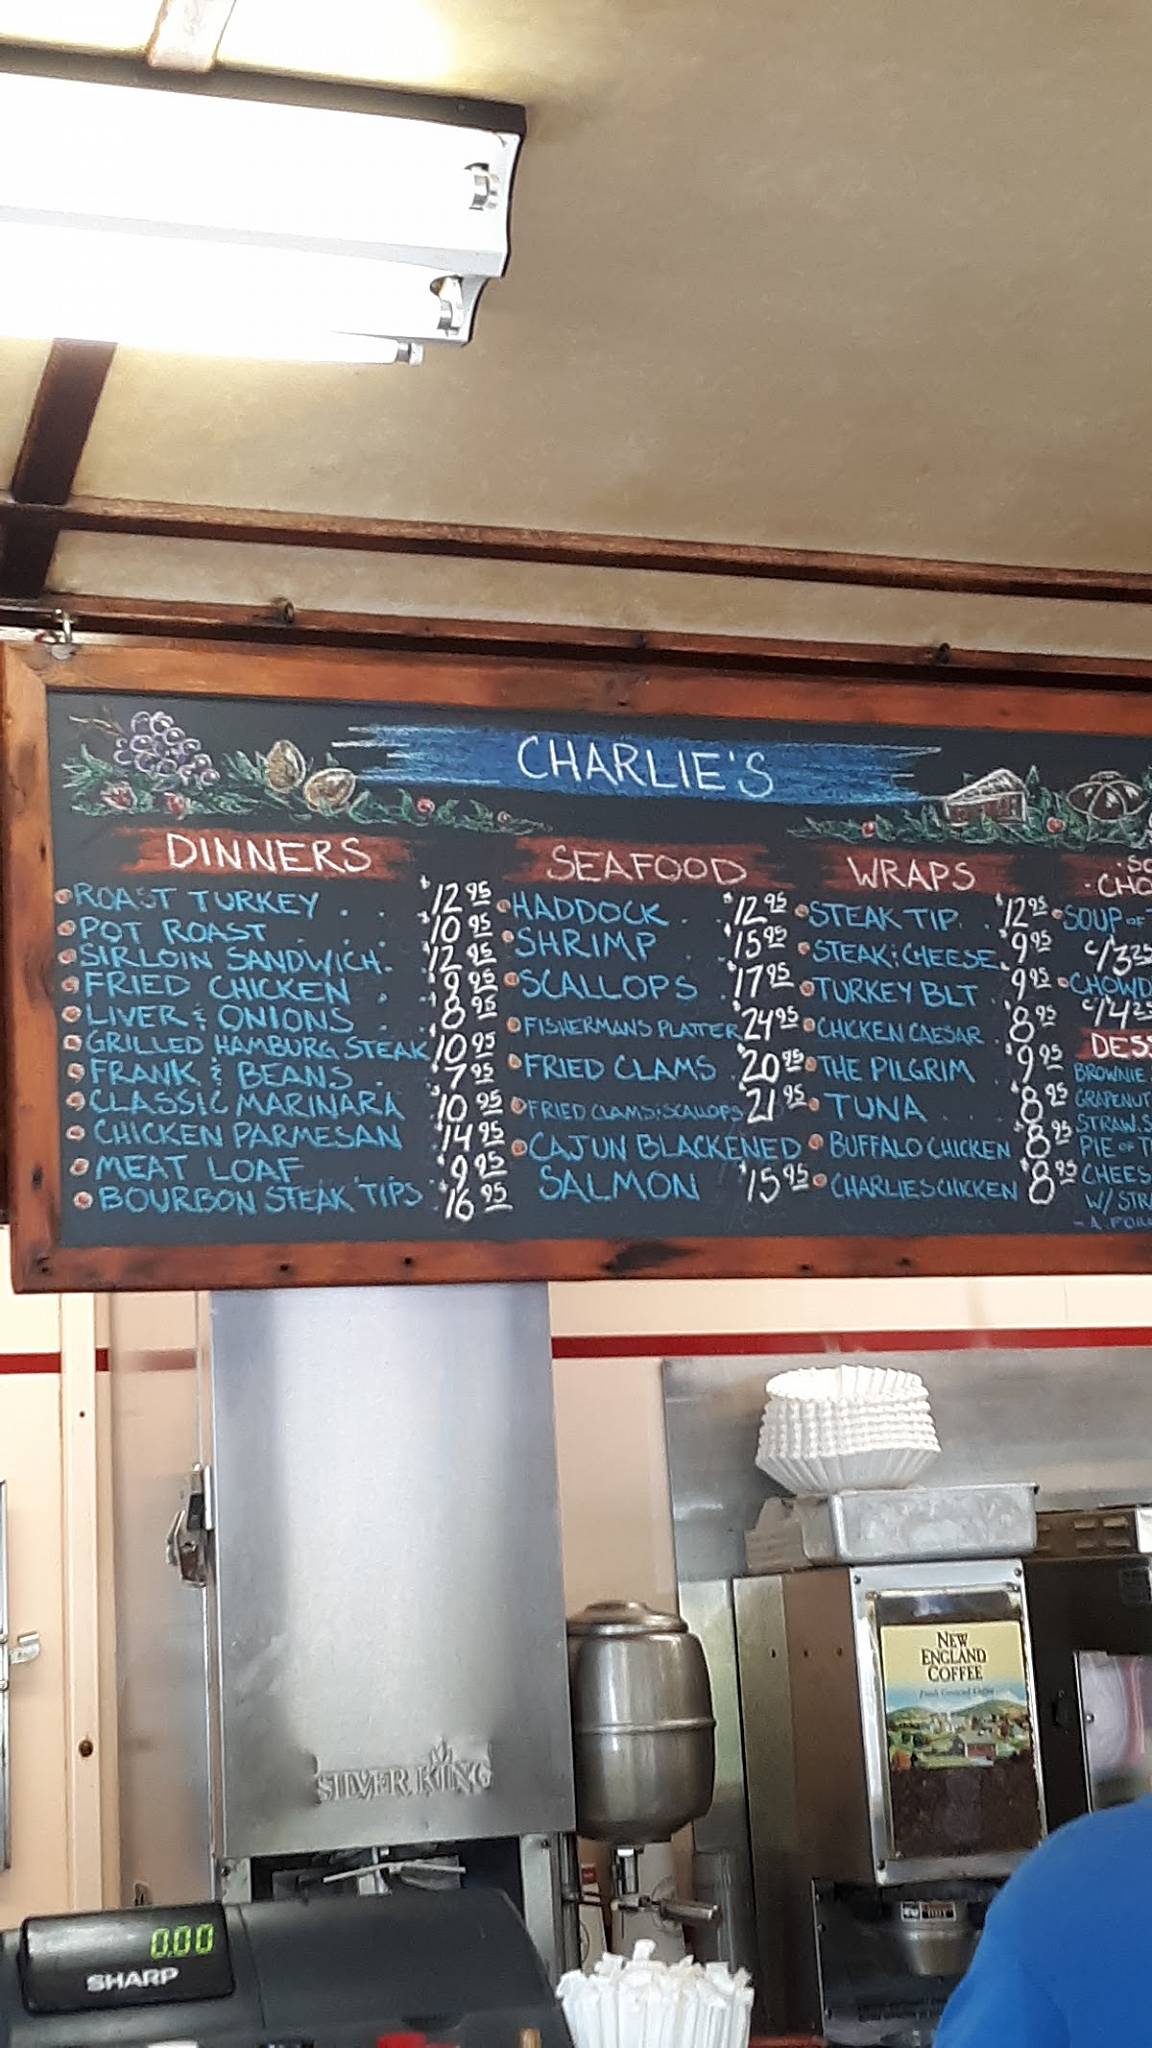 CHARLIE'S
DINNERS
ROAST TURKEY . . $12.95
POT ROAST . . . $10.95
SIRLOIN SANDWICH. $12.95
FRIED CHICKEN . $9.95
LIVER & ONIONS . $8.95
GRILLED HAMBURG STEAK $10.95
FRANK & BEANS . $7.95
CLASSIC MARINARA $10.95
CHICKEN PARMESAN $14.95
MEAT LOAF $9.95
BOURBON STEAK TIPS $16.95
SEAFOOD
HADDOCK . . $12.95
SHRIMP . $15.95
SCALLOPS . $17.95
FISHERMANS PLATTER $24.95
FRIED CLAMS $20.95
FRIED CLAMS & SCALLOPS 21.95
CAJUN BLACKENED
SALMON $15.95
WRAPS
STEAK TIP. . $12.95
STEAK & CHEESE $9.95
TURKEY BLT . $9.95
CHICKEN CAESAR . $8.95
THE PILGRIM $9.95
TUNA . . . $8.95
BUFFALO CHICKEN $8.95
CHARLIES CHICKEN $8.95
SOUP OF
C/3.25
CHOWD
C/4.25
DESS
BROWNIE
GRAPENUT
STRAW.S
PIE OF T
CHEES
W/ STR
SILVER KING
NEW
ENGLAND
COFFEE
0.00
SHARP